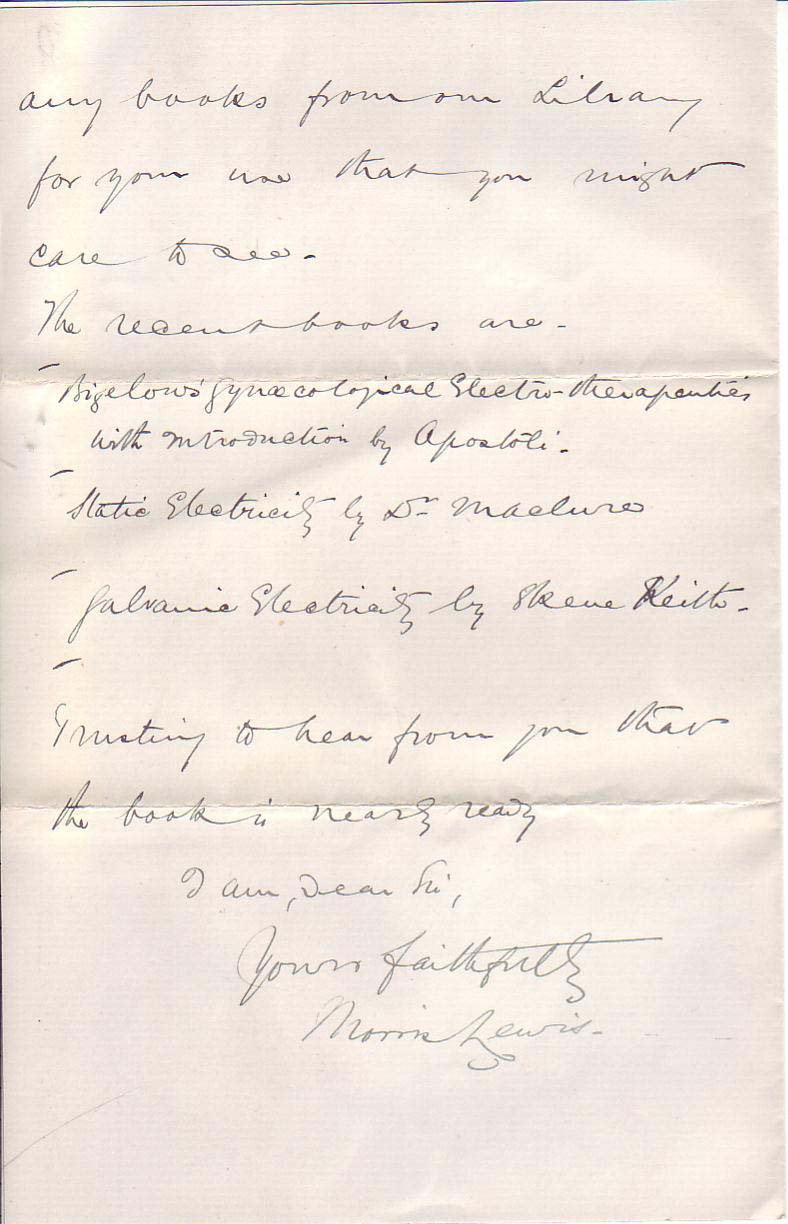 any books from our Library
for your use that you might
care to see -
The recent books are -
Bigelow's Gynæcological Electro-therapeutics
with introduction by Apostoli -
Static Electricity by Dr Maclure
Galvanic Electricity by Skene Keith -
Trusting to hear from you that
the book is nearly ready
I am, Dear Sir,
Yours faithfully
Morris Lewis -